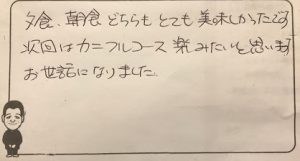 夕食、朝食 どちらも とても 美味しかったです
次回は カニフルコース 楽みたいと思います
お世話になりました。